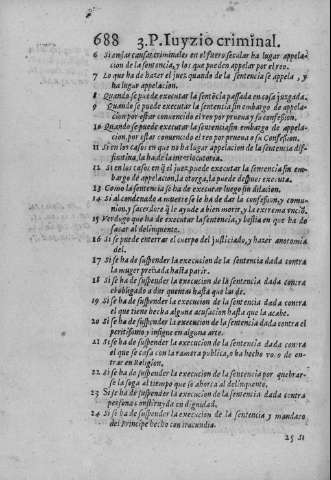 688 3.P. Iuyzio criminal.
6 Si en las causas criminales en el fuero secular ha lugar appela-
cion de la sentencia, y los que pueden appelar por el reo.
7 Lo que ha de hazer el juez quando de la sentencia se appela, y
ha lugar appelacion.
8 Quando se puede executar la sentẽcia passada en cosa juzgada.
9 Quando se puede executar la sentencia sin embargo de appela-
cion por estar conuencido el reo por prueua y su confession.
10 Quando se puede executar la sentencia sin embargo de appela-
cion, por estar conuencido el reo por prueua o su Confession.
11 Si en los casos en que no ha lugar appelacion de la sentencia dif-
finitiua, la ha de la interlocutoria.
12 Si en los casos en q̃ el juez puede executar la sentencia sin em-
bargo de appelacion, la otorga, la puede despues executa.
13 Como la sentencia se ha de executar luego sin dilacion.
14 Si al condenado a muerte se le ha de dar la confession, y comu-
nion, y sacerdote q̃ le ayude a bien morir, y la extrema vncio.
15 Verdugo que ha de executar la sentencia, y bestia en que ha de
sacar al delinquente.
16 Si se puede enterrar el cuerpo del justiciado, y hazer anotomia
del.
17 Si se ha de suspender la execucion de la sentencia dada contra
la muger preñada hasta parir.
18 Si se ha de suspender la execucion de la sentencia dada contra
el obligado a dar quentas hasta que las de.
19 Si se ha de suspender la execucion de la sentencia dada contra
el que tiene hecha alguna acusacion hasta que la acabe.
20 Si se ha de suspender la execucion de la sentencia dada contra el
peritissimo y insigne en alguna arte.
21 Si se ha de suspender la execucion de la sentencia dada contra
el que se casa con la ramera publica, o ha hecho voto de en-
trar en Religion.
22 Si se ha de suspender la execucion de la sentencia por quebrar-
se la soga al tiempo que se ahorca al delinquente.
23 Si se ha de suspender la execucion de la sentencia dada contra
persona constituyda en dignidad.
24 Si se ha de suspender la execucion de la sentencia y mandato
del Principe hecho con iracundia.
25 Si